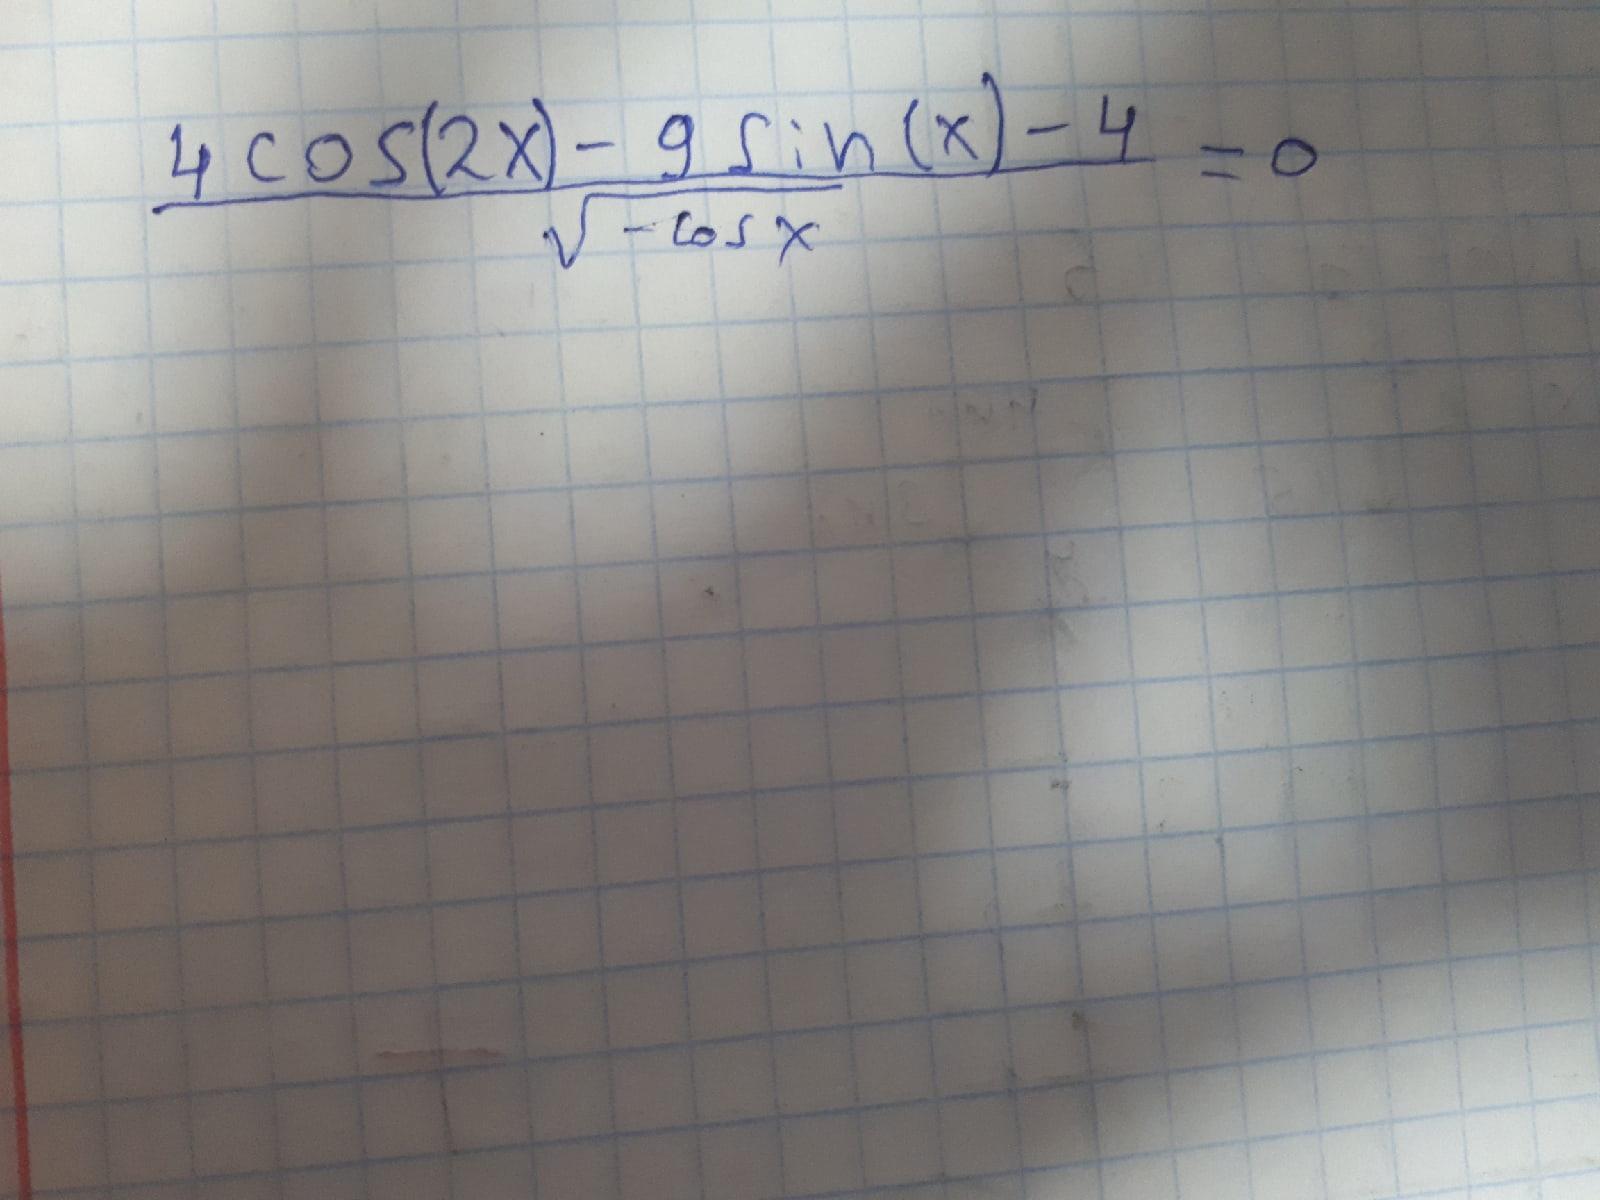 4 cos(2x) - 9 sin(x) - 4 = 0
√-cos x